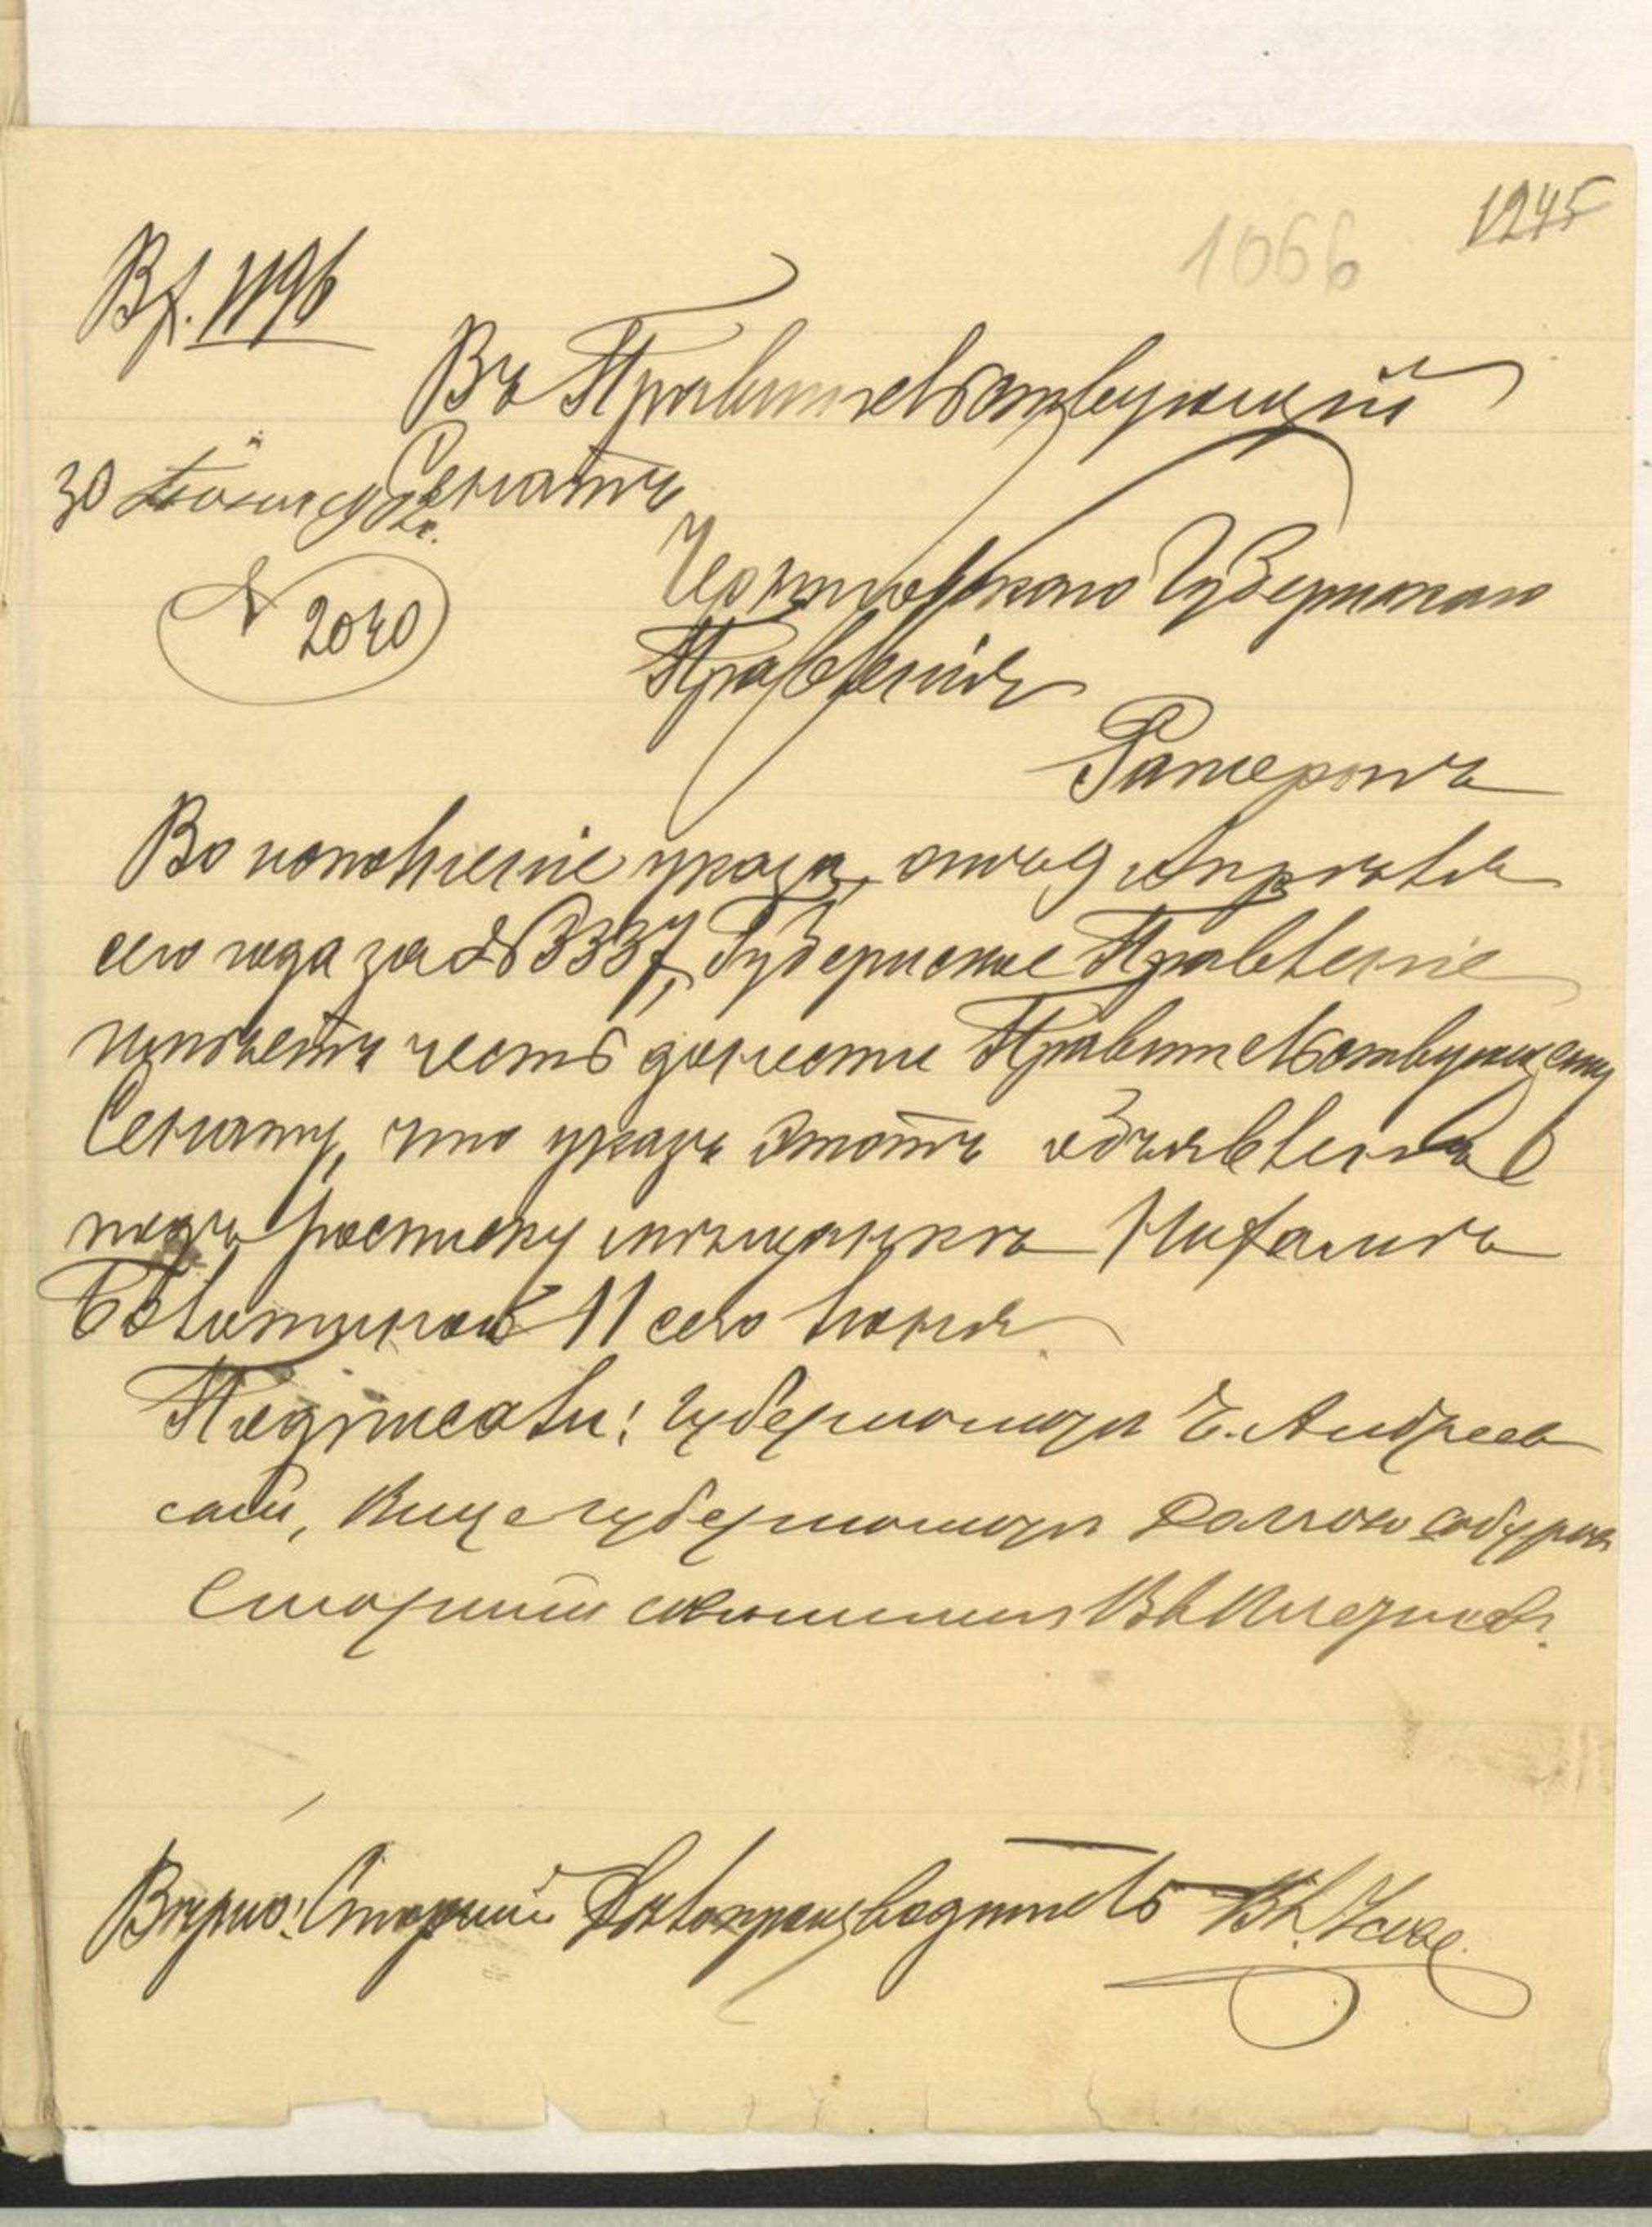 1245
1066
Вх. 1196
Въ Правительствующій
Сенатъ
30 Іюня
№ 2040
Черниговскаго Губернскаго
Правленія
Рапортъ
Во исполненіе указа, отъ 9 Апрѣля
сего года за № 3337, Губернское Правленіе
имѣетъ честь донести Правительствующему
Сенату, что указъ этотъ объявленъ
подъ росписку мѣщанкѣ
11 сего Іюня
Подписали: Губернаторъ Е. Андреев
скій, Вице губернаторъ
Старшій совѣтникъ
Вѣрно: Старшій Дѣлопроизводитель